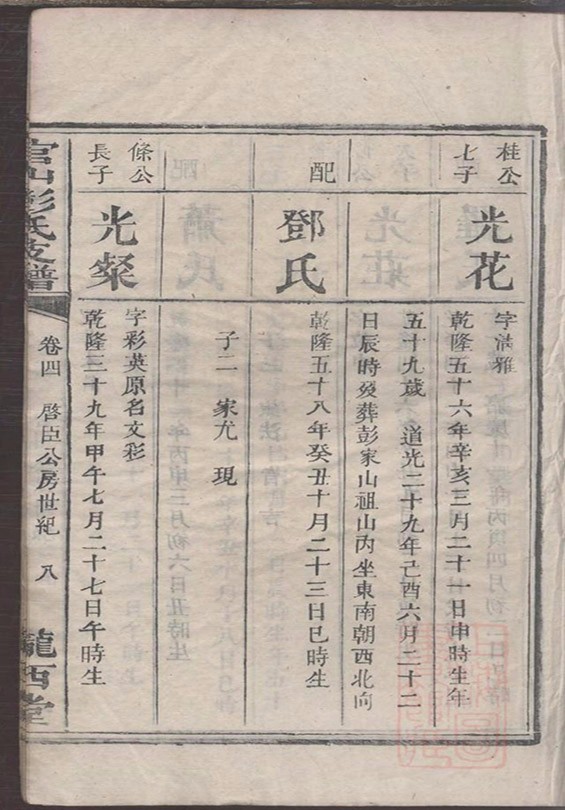 桂公
七子
光花
字満雅
乾隆五十六年辛亥三月二十一日申時生年
五十九歲 道光二十九年己酉六月二十二
日辰時歿葬彭家山祖山內坐東南朝西北向
配
鄧氏
乾隆五十八年癸丑十月二十三日巳時生
子二 家尤 現
條公
長子
光粲
字彩英原名文彩
乾隆三十九年甲午七月二十七日午時生
官山彭氏支譜
卷四 啓臣公房世紀 八
隴西堂